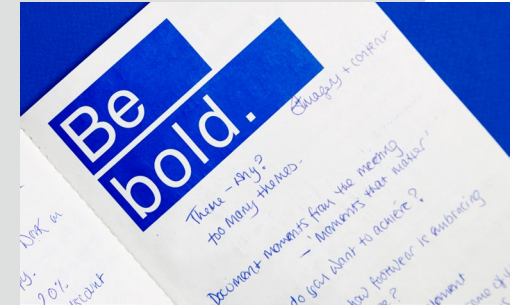 Be
bold.
Imagery + content
Theme - Why?
too many themes.
Document moments from the meeting
- 'Moments that matter'
do you want to achieve?
how footwear is embracing
?
Work on
20%